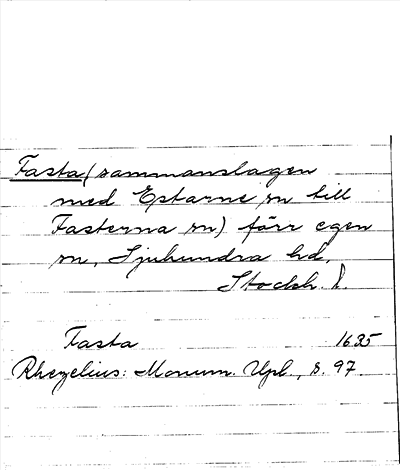 Fasta (sammanslagen
med Estarne sn till
Fasterna sn) förr egen
sn, Sjuhundra hd,
Stockh. l.
Fasta 1635
Rhezelius: Monum. Upl., s. 97.